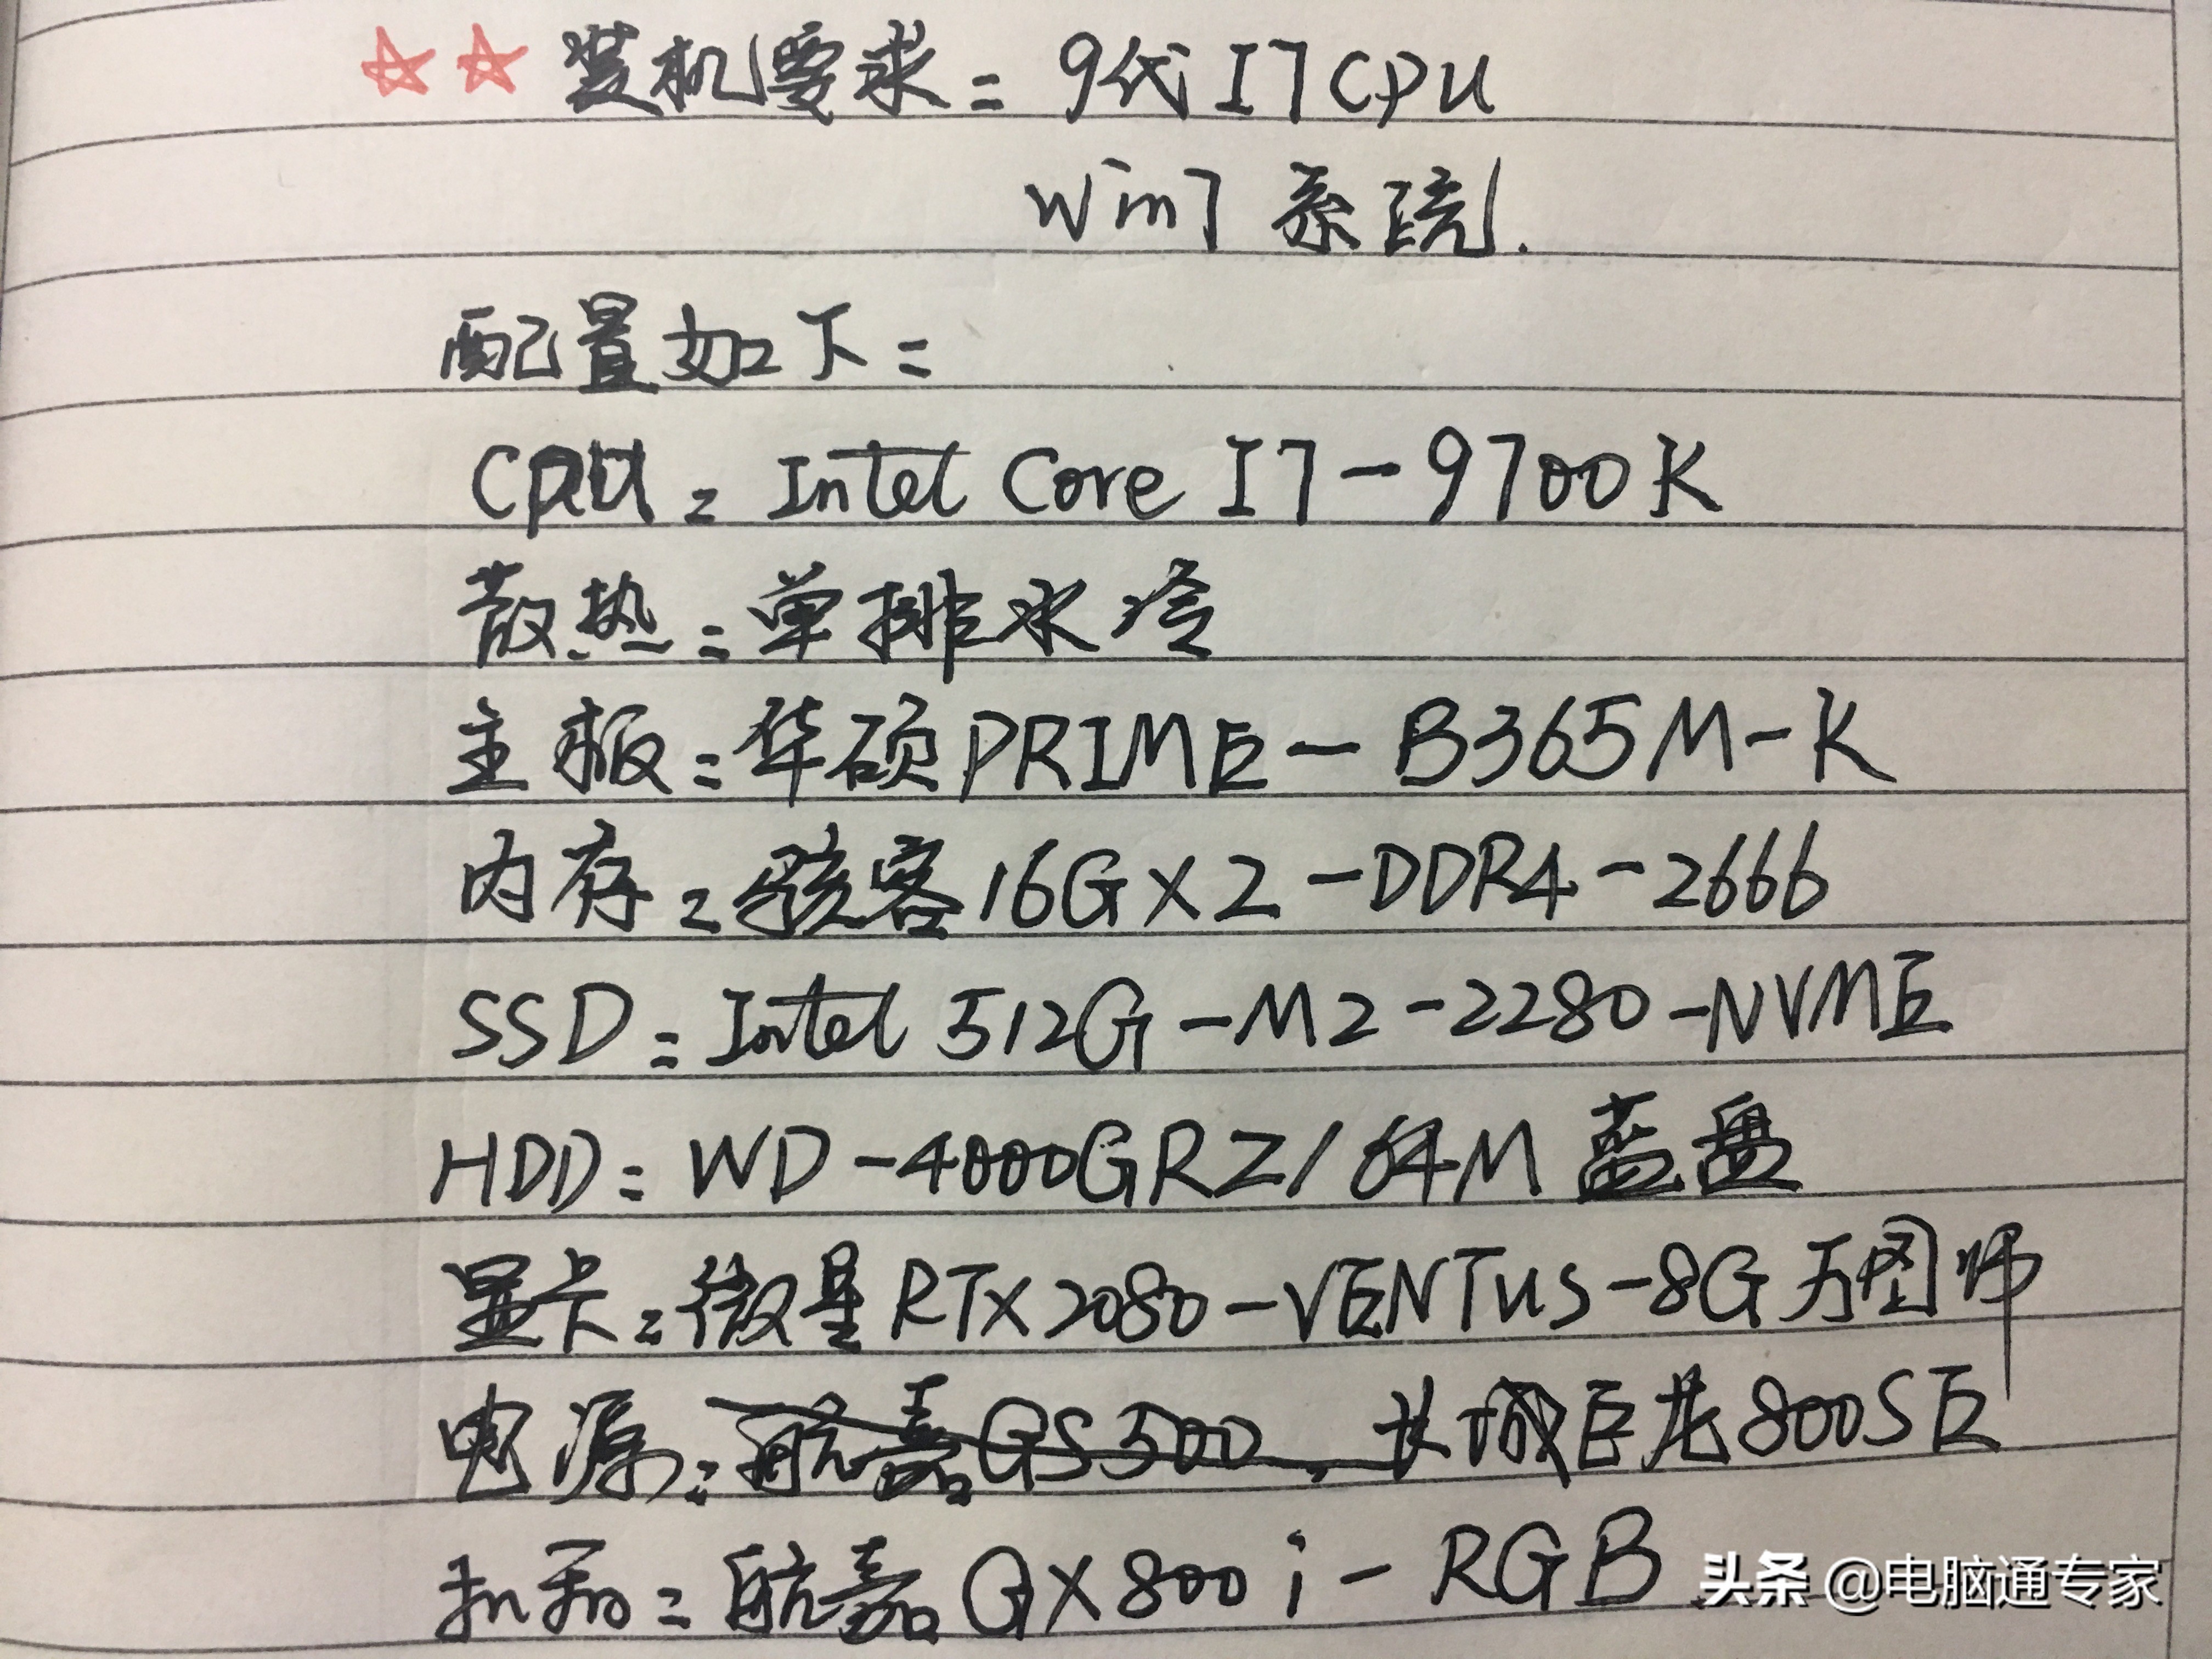 ☆☆ 装机要求：9代I7CPU
Win7 系统.
配置如下：
CPU：Intel Core I7-9700K
散热：单排水冷
主板：华硕PRIME-B365M-K
内存：骇客16GX2-DDR4-2666
SSD：Intel 512G-M2-2280-NVME
HDD：WD-4000GRZ/64M 蓝盘
显卡：微星RTX2080-VENTUS-8G万图师
电源：航嘉GS500，长城巨龙800SE
机箱：航嘉GX800i-RGB
头条 @电脑通专家